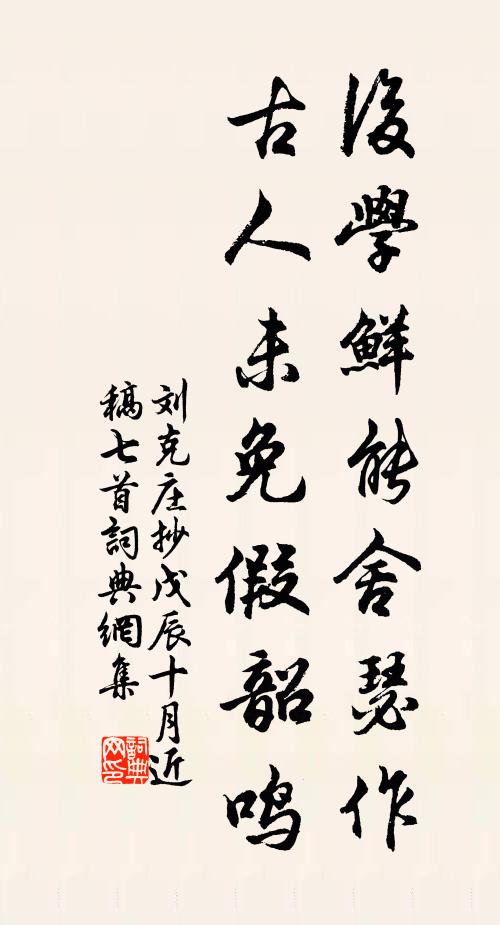 後學鮮能舍瑟作
古人未免假韶鸣
刘克庄抄戊辰十月近
稿七首詞典網集
詞典网印